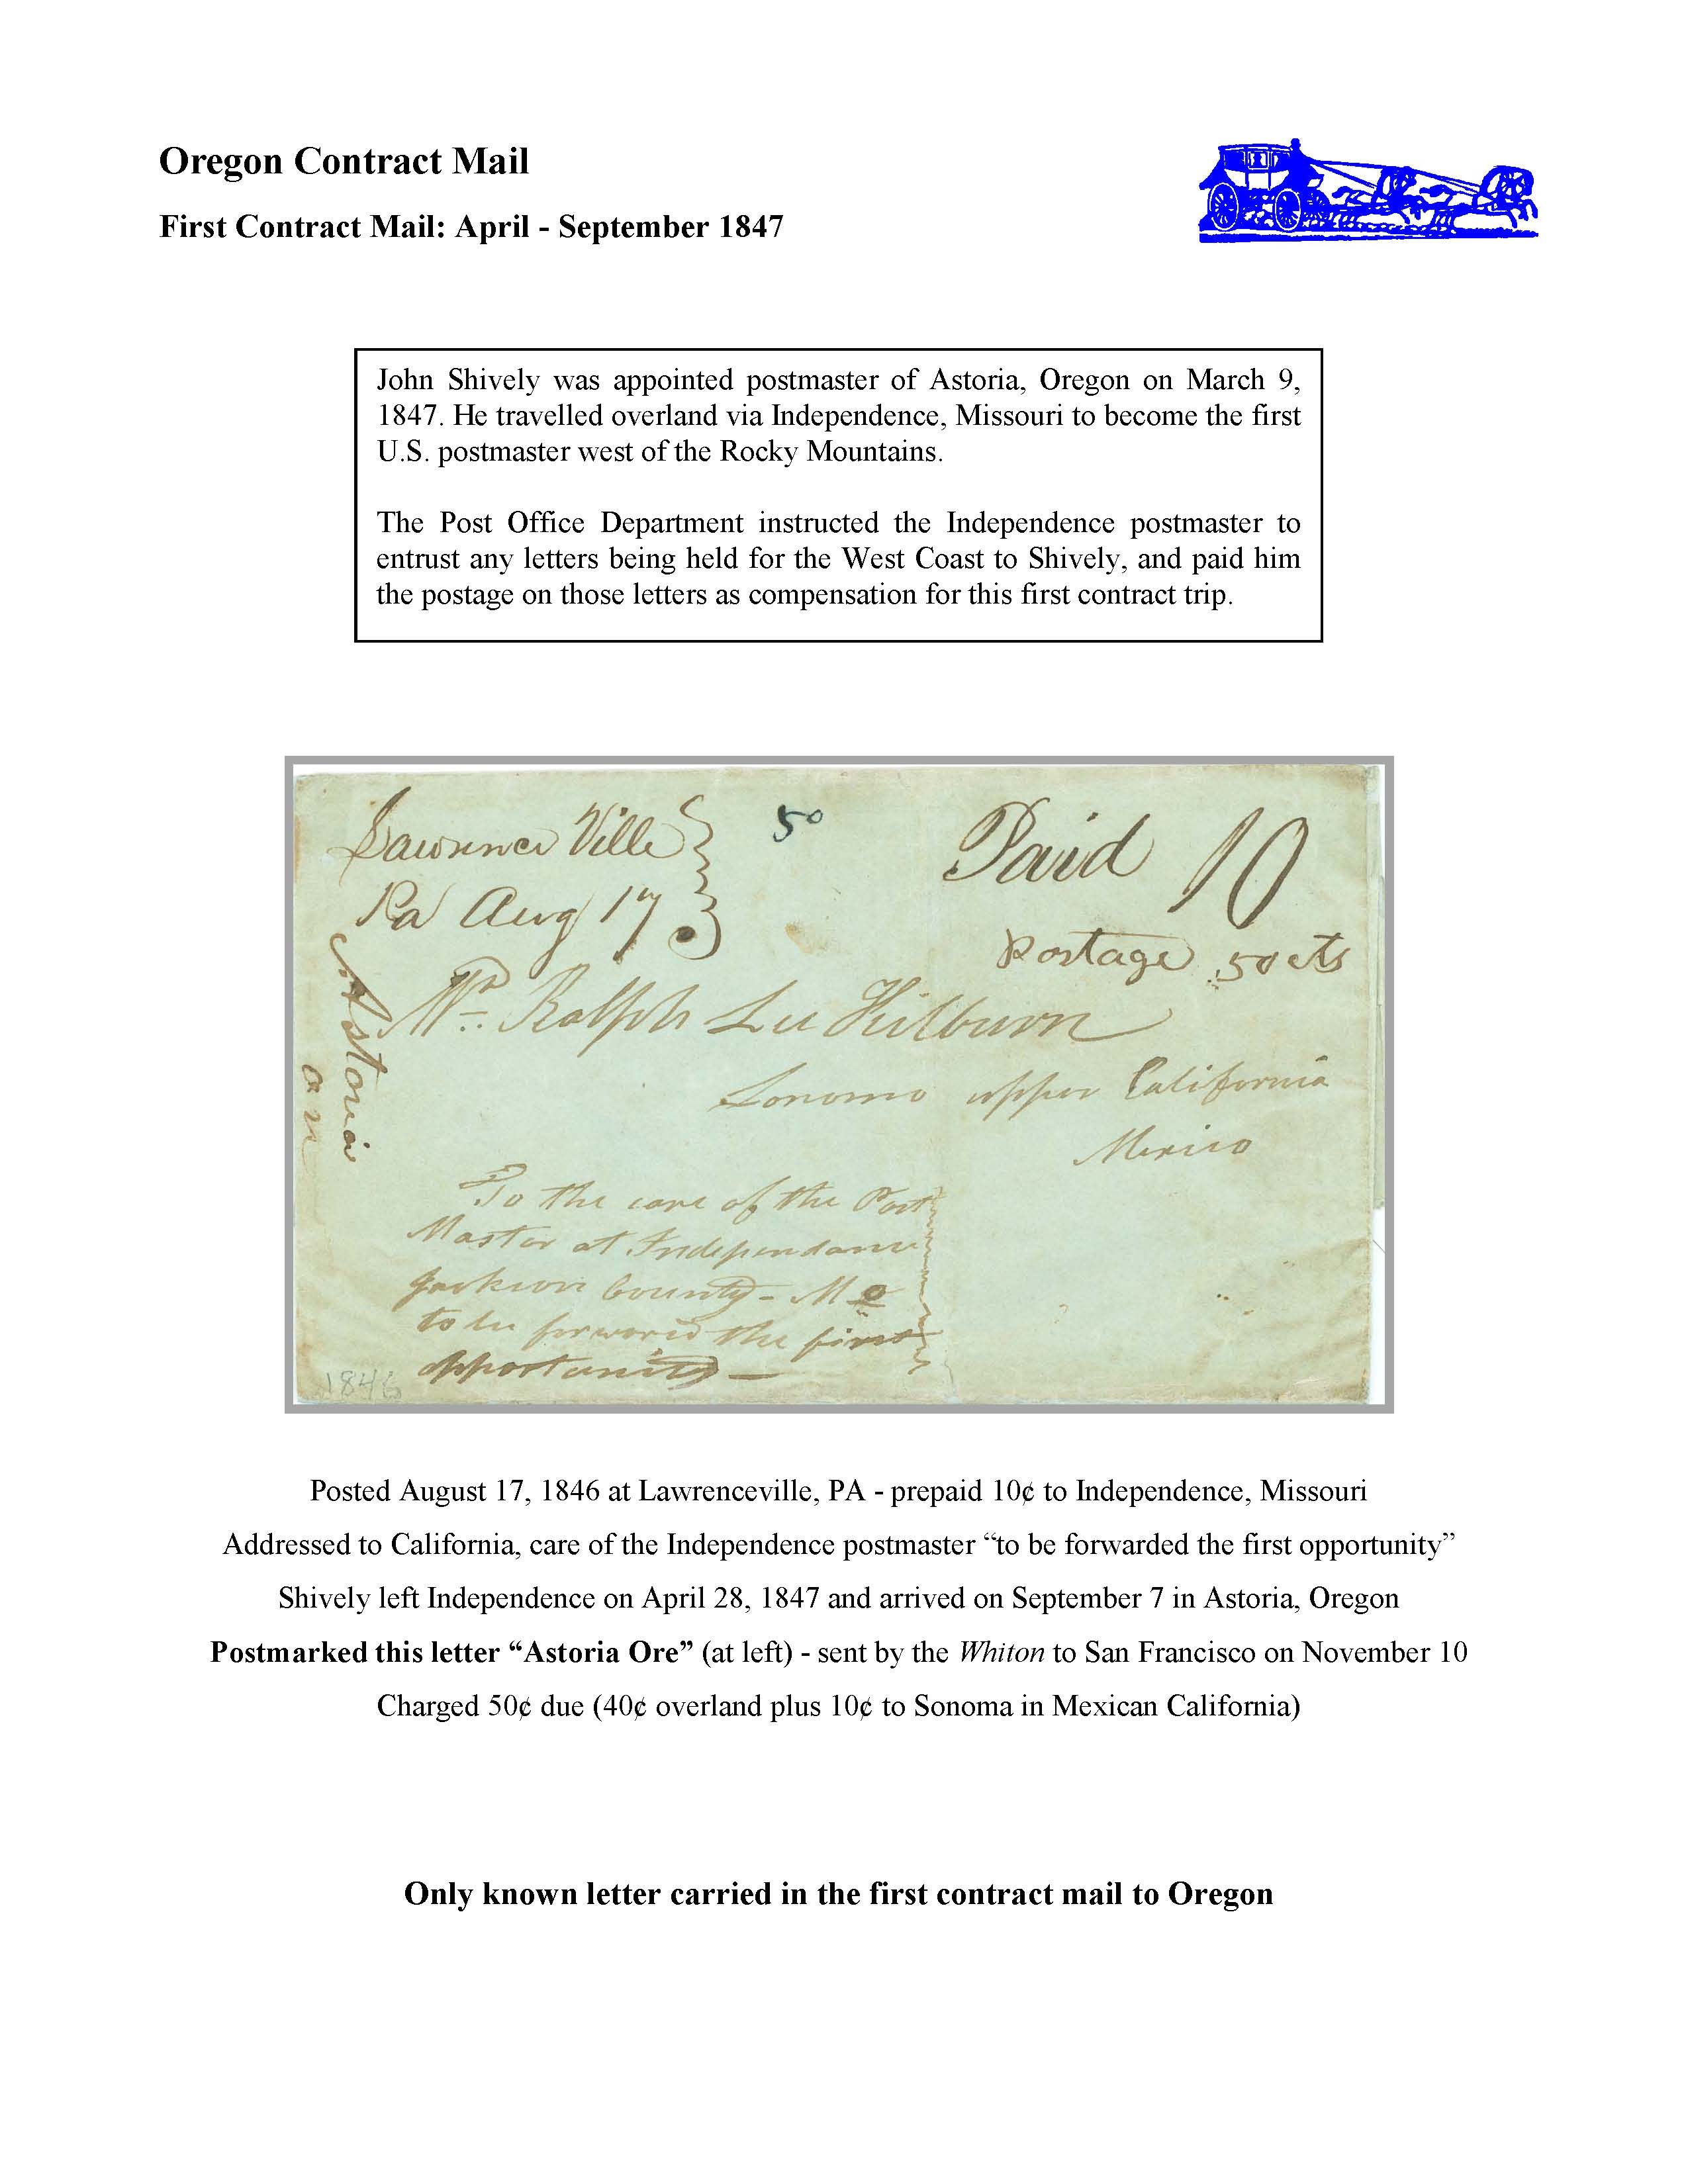 Oregon Contract Mail
First Contract Mail: April - September 1847
John Shively was appointed postmaster of Astoria, Oregon on March 9,
1847. He travelled overland via Independence, Missouri to become the first
U.S. postmaster west of the Rocky Mountains.
The Post Office Department instructed the Independence postmaster to
entrust any letters being held for the West Coast to Shively, and paid him
the postage on those letters as compensation for this first contract trip.
Lawrence Ville
Pa Aug 17
50
Paid 10
Postage 50 cts
Astoria
Mr. Ralph Lee Kilburn
Sonomo upper California
Mexico
To the care of the Post
Master at Independance
Jackson County - Mo
to be forword the first
opportunity —
1846
Posted August 17, 1846 at Lawrenceville, PA - prepaid 10¢ to Independence, Missouri
Addressed to California, care of the Independence postmaster “to be forwarded the first opportunity”
Shively left Independence on April 28, 1847 and arrived on September 7 in Astoria, Oregon
Postmarked this letter “Astoria Ore” (at left) - sent by the Whiton to San Francisco on November 10
Charged 50¢ due (40¢ overland plus 10¢ to Sonoma in Mexican California)
Only known letter carried in the first contract mail to Oregon